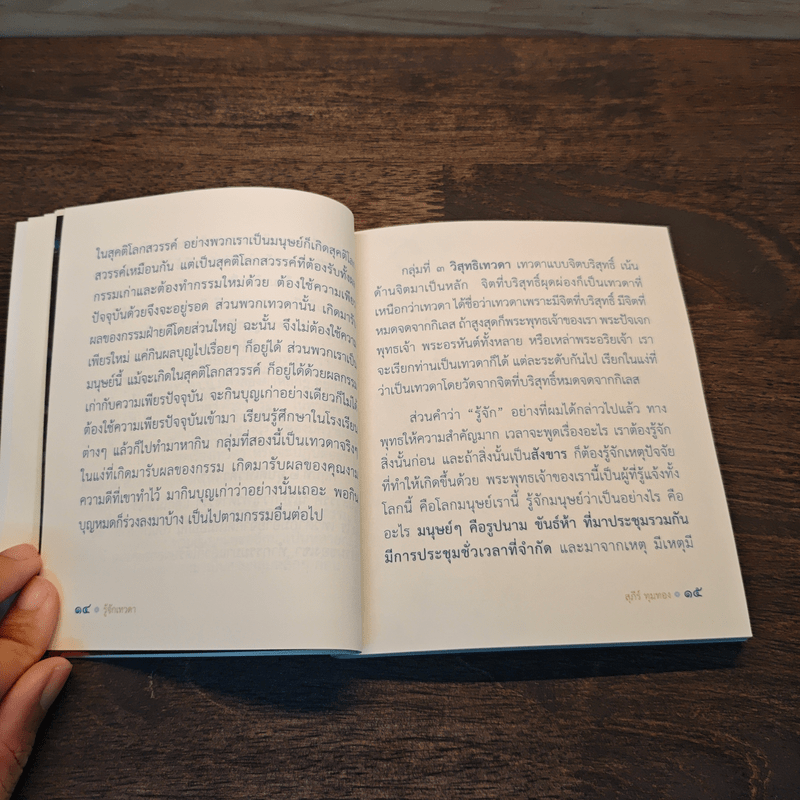 ในสุคติโลกสวรรค์ อย่างพวกเราเป็นมนุษย์ก็เกิดสุคติโลก
สวรรค์เหมือนกัน แต่เป็นสุคติโลกสวรรค์ที่ต้องรับทั้งผล
กรรมเก่าและต้องทำกรรมใหม่ด้วย ต้องใช้ความเพียร
ปัจจุบันด้วยจึงจะอยู่รอด ส่วนพวกเทวดานั้น เกิดมารับ
ผลของกรรมฝ่ายดีโดยส่วนใหญ่ ฉะนั้น จึงไม่ต้องใช้ความ
เพียรใหม่ แค่กินผลบุญไปเรื่อยๆ ก็อยู่ได้ ส่วนพวกเราเป็น
มนุษย์นี้ แม้จะเกิดในสุคติโลกสวรรค์ ก็อยู่ได้ด้วยผลกรรม
เก่ากับความเพียรปัจจุบัน จะกินบุญเก่าอย่างเดียวก็ไม่ได้
ต้องใช้ความเพียรปัจจุบันเข้ามา เรียนรู้ศึกษาในโรงเรียน
ต่างๆ แล้วก็ไปทำมาหากิน กลุ่มที่สองนี้เป็นเทวดาจริงๆ
ในแง่ที่เกิดมารับผลของกรรม เกิดมารับผลของคุณงาม
ความดีที่เขาทำไว้ มากินบุญเก่าว่าอย่างนั้นเถอะ พอกิน
บุญหมดก็ร่วงลงมาบ้าง เป็นไปตามกรรมอื่นต่อไป
๑๔ รู้จักเทวดา
กลุ่มที่ ๓ วิสุทธิเทวดา เทวดาแบบจิตบริสุทธิ์ เน้น
ด้านจิตมาเป็นหลัก จิตที่บริสุทธิ์ผุดผ่องก็เป็นเทวดาที่
เหนือกว่าเทวดา ได้ชื่อว่าเทวดาเพราะมีจิตที่บริสุทธิ์ มีจิตที่
หมดจดจากกิเลส ถ้าสูงสุดก็พระพุทธเจ้าของเรา พระปัจเจก
พุทธเจ้า พระอรหันต์ทั้งหลาย หรือเหล่าพระอริยเจ้า เรา
จะเรียกท่านเป็นเทวดาก็ได้ แต่ละระดับกันไป เรียกในแง่ที่
ว่าเป็นเทวดาโดยวัดจากจิตที่บริสุทธิ์หมดจดจากกิเลส
ส่วนคำว่า “รู้จัก” อย่างที่ผมได้กล่าวไปแล้ว ทาง
พุทธให้ความสำคัญมาก เวลาจะพูดเรื่องอะไร เราต้องรู้จัก
สิ่งนั้นก่อน และถ้าสิ่งนั้นเป็นสังขาร ก็ต้องรู้จักเหตุปัจจัย
ที่ทำให้เกิดขึ้นด้วย พระพุทธเจ้าของเรานี้เป็นผู้ที่รู้แจ้งทั้ง
โลกนี้ คือโลกมนุษย์เรานี้ รู้จักมนุษย์ว่าเป็นอย่างไร คือ
อะไร มนุษย์ๆ คือรูปนาม ขันธ์ห้า ที่มาประชุมรวมกัน
มีการประชุมชั่วเวลาที่จำกัด และมาจากเหตุ มีเหตุมี
สุภีร์ ทุมทอง ๑๕